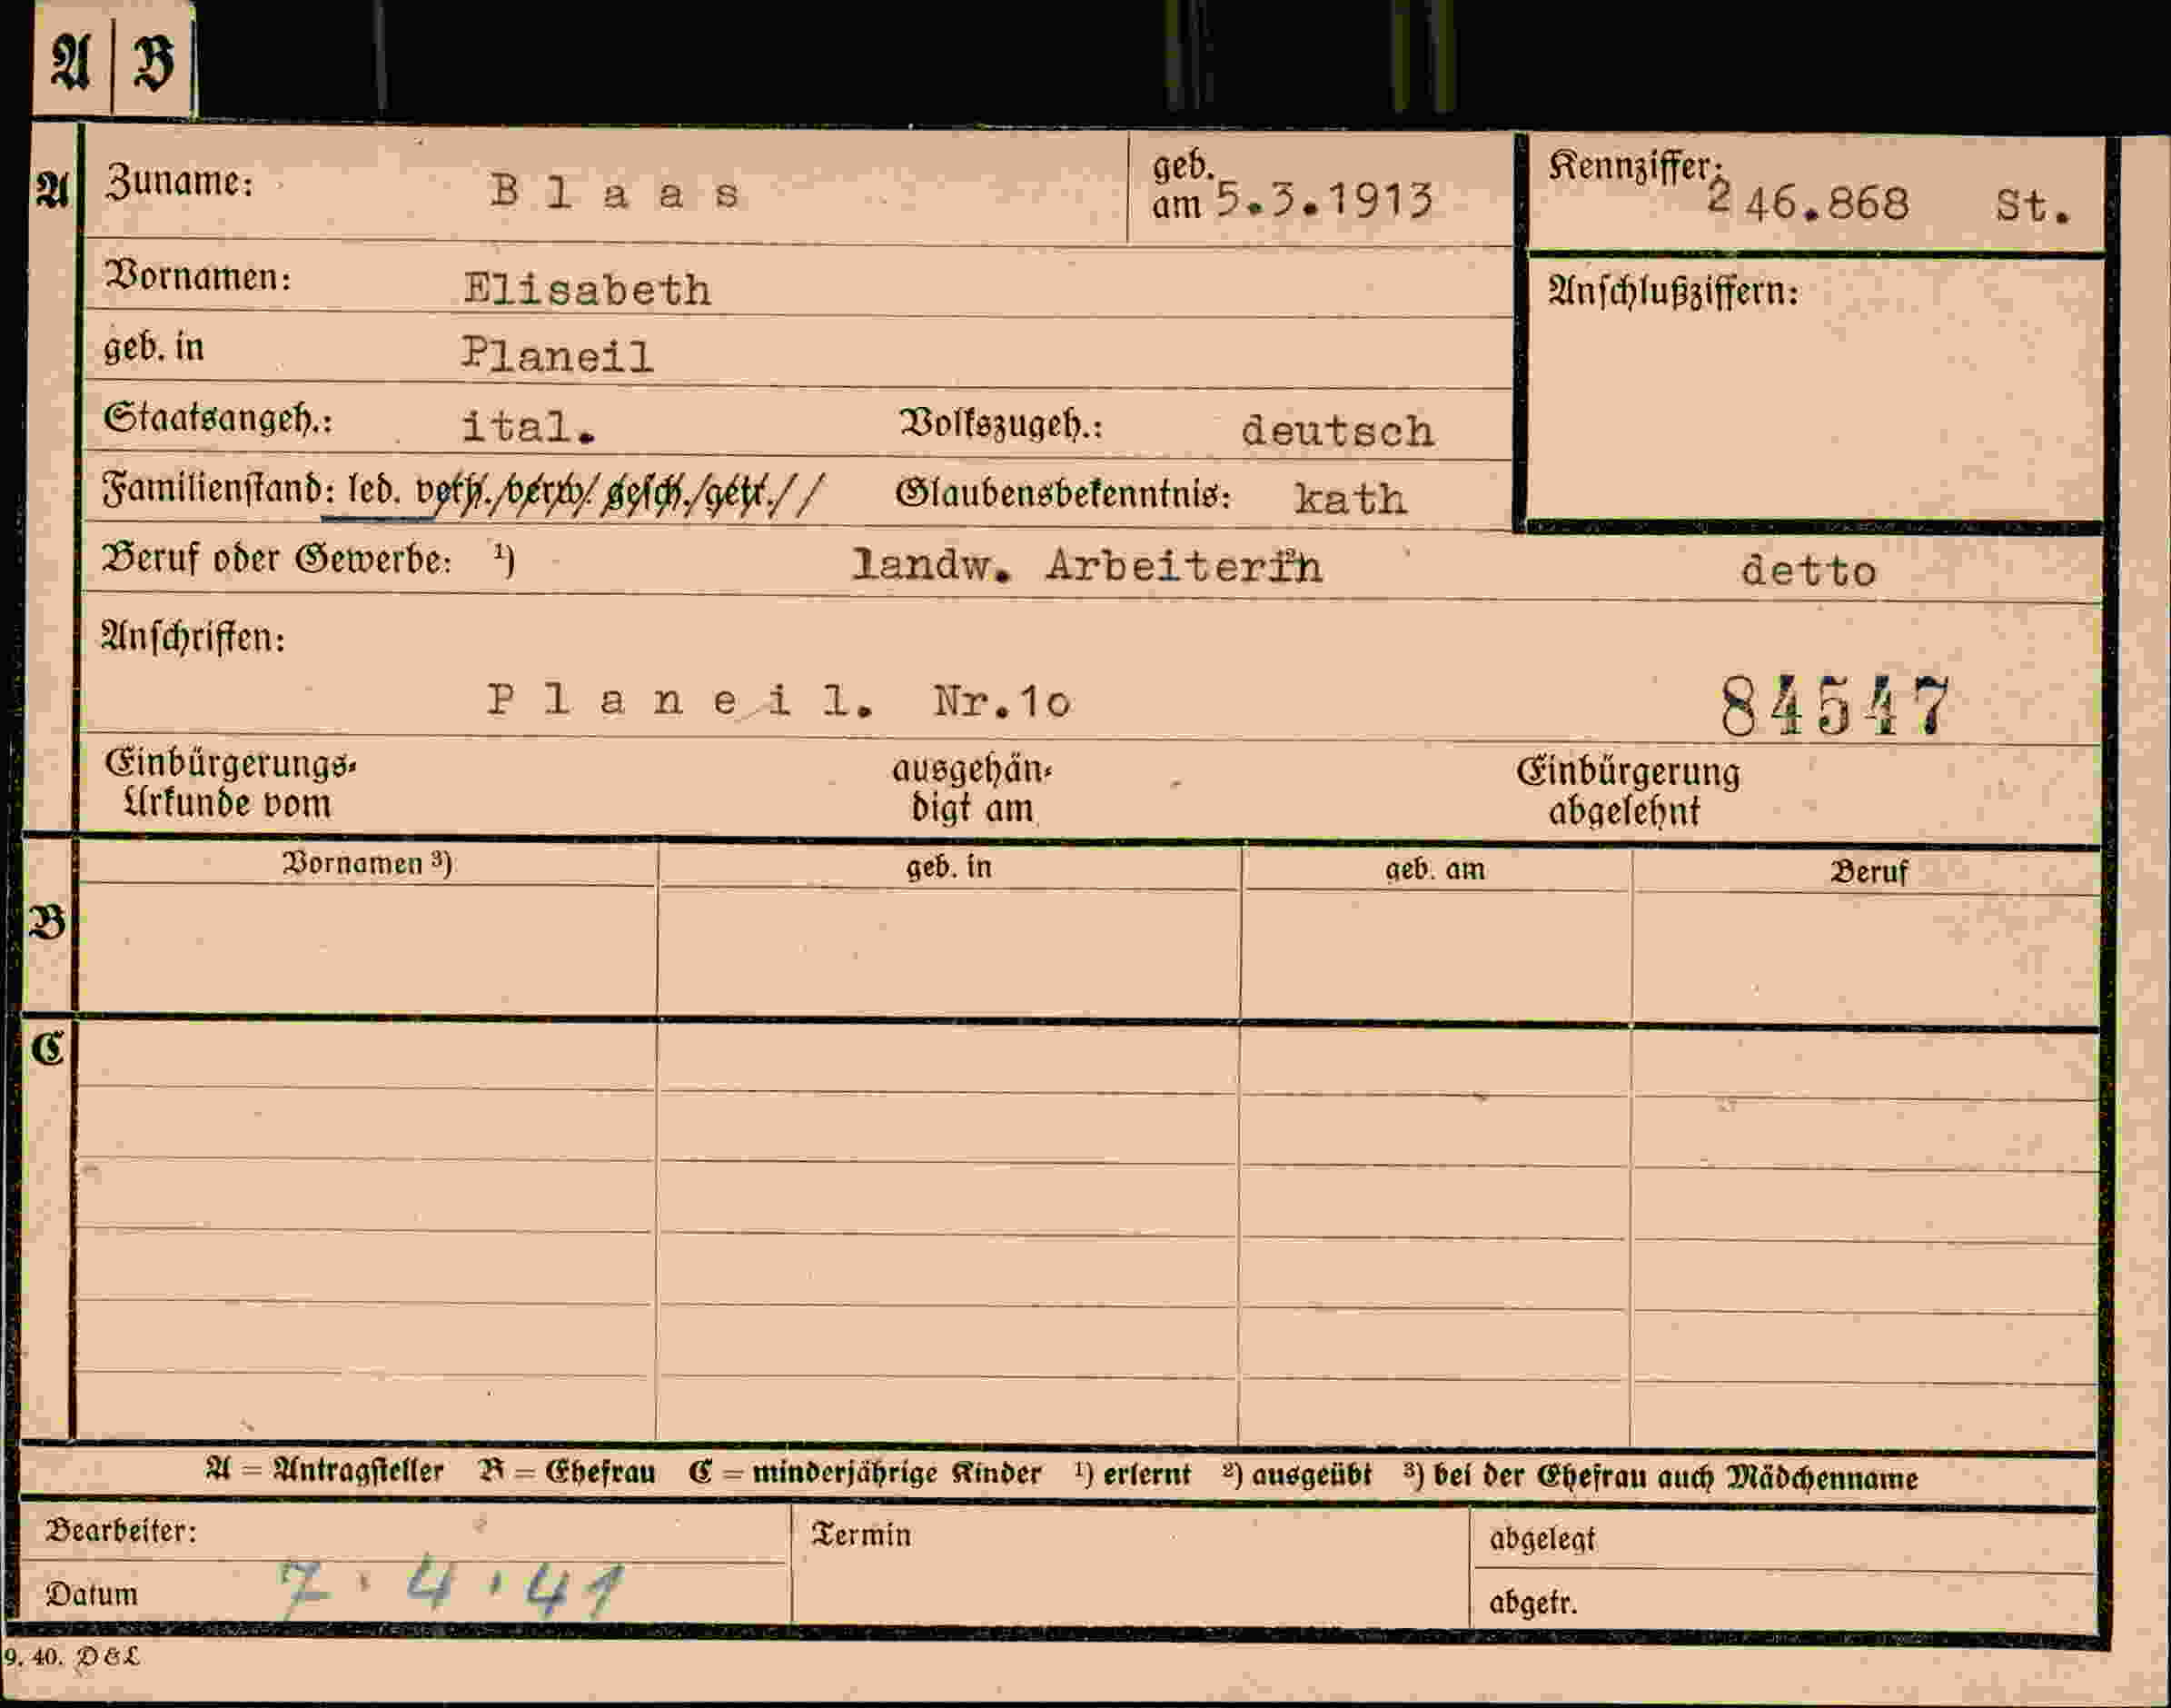 A | B
A Zuname: Blaas geb. am 5.3.1913 Kennziffer: 246.868 St.
Vornamen: Elisabeth Anschlußziffern:
geb. in Planeil
Staatsangeh.: ital. Volkszugeh.: deutsch
Familienstand: led. verh. verw. gesch. getr. Glaubensbekenntnis: kath
Beruf oder Gewerbe: ¹) landw. Arbeiterin ²) detto
Anschriften:
Planeil. Nr.10 84547
Einbürgerungs- ausgehän- Einbürgerung
Urkunde vom digt am abgelehnt
Vornamen ³) geb. in geb. am Beruf
B
C
A = Antragsteller B = Ehefrau C = minderjährige Kinder ¹) erlernt ²) ausgeübt ³) bei der Ehefrau auch Mädchenname
Bearbeiter: Termin abgelegt
Datum 7.4.41 abgetr.
9. 40. D&L